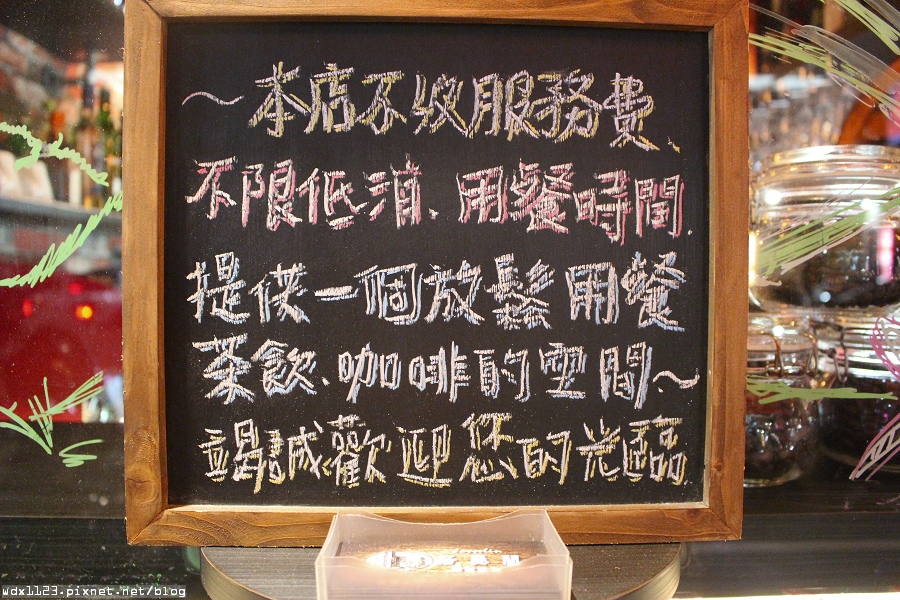 ~本店不收服務費、
不限低消、用餐時間.
提供一個放鬆用餐
茶飲、咖啡的空間~
竭誠歡迎您的光臨.
wdx1123.pixnet.net/blog